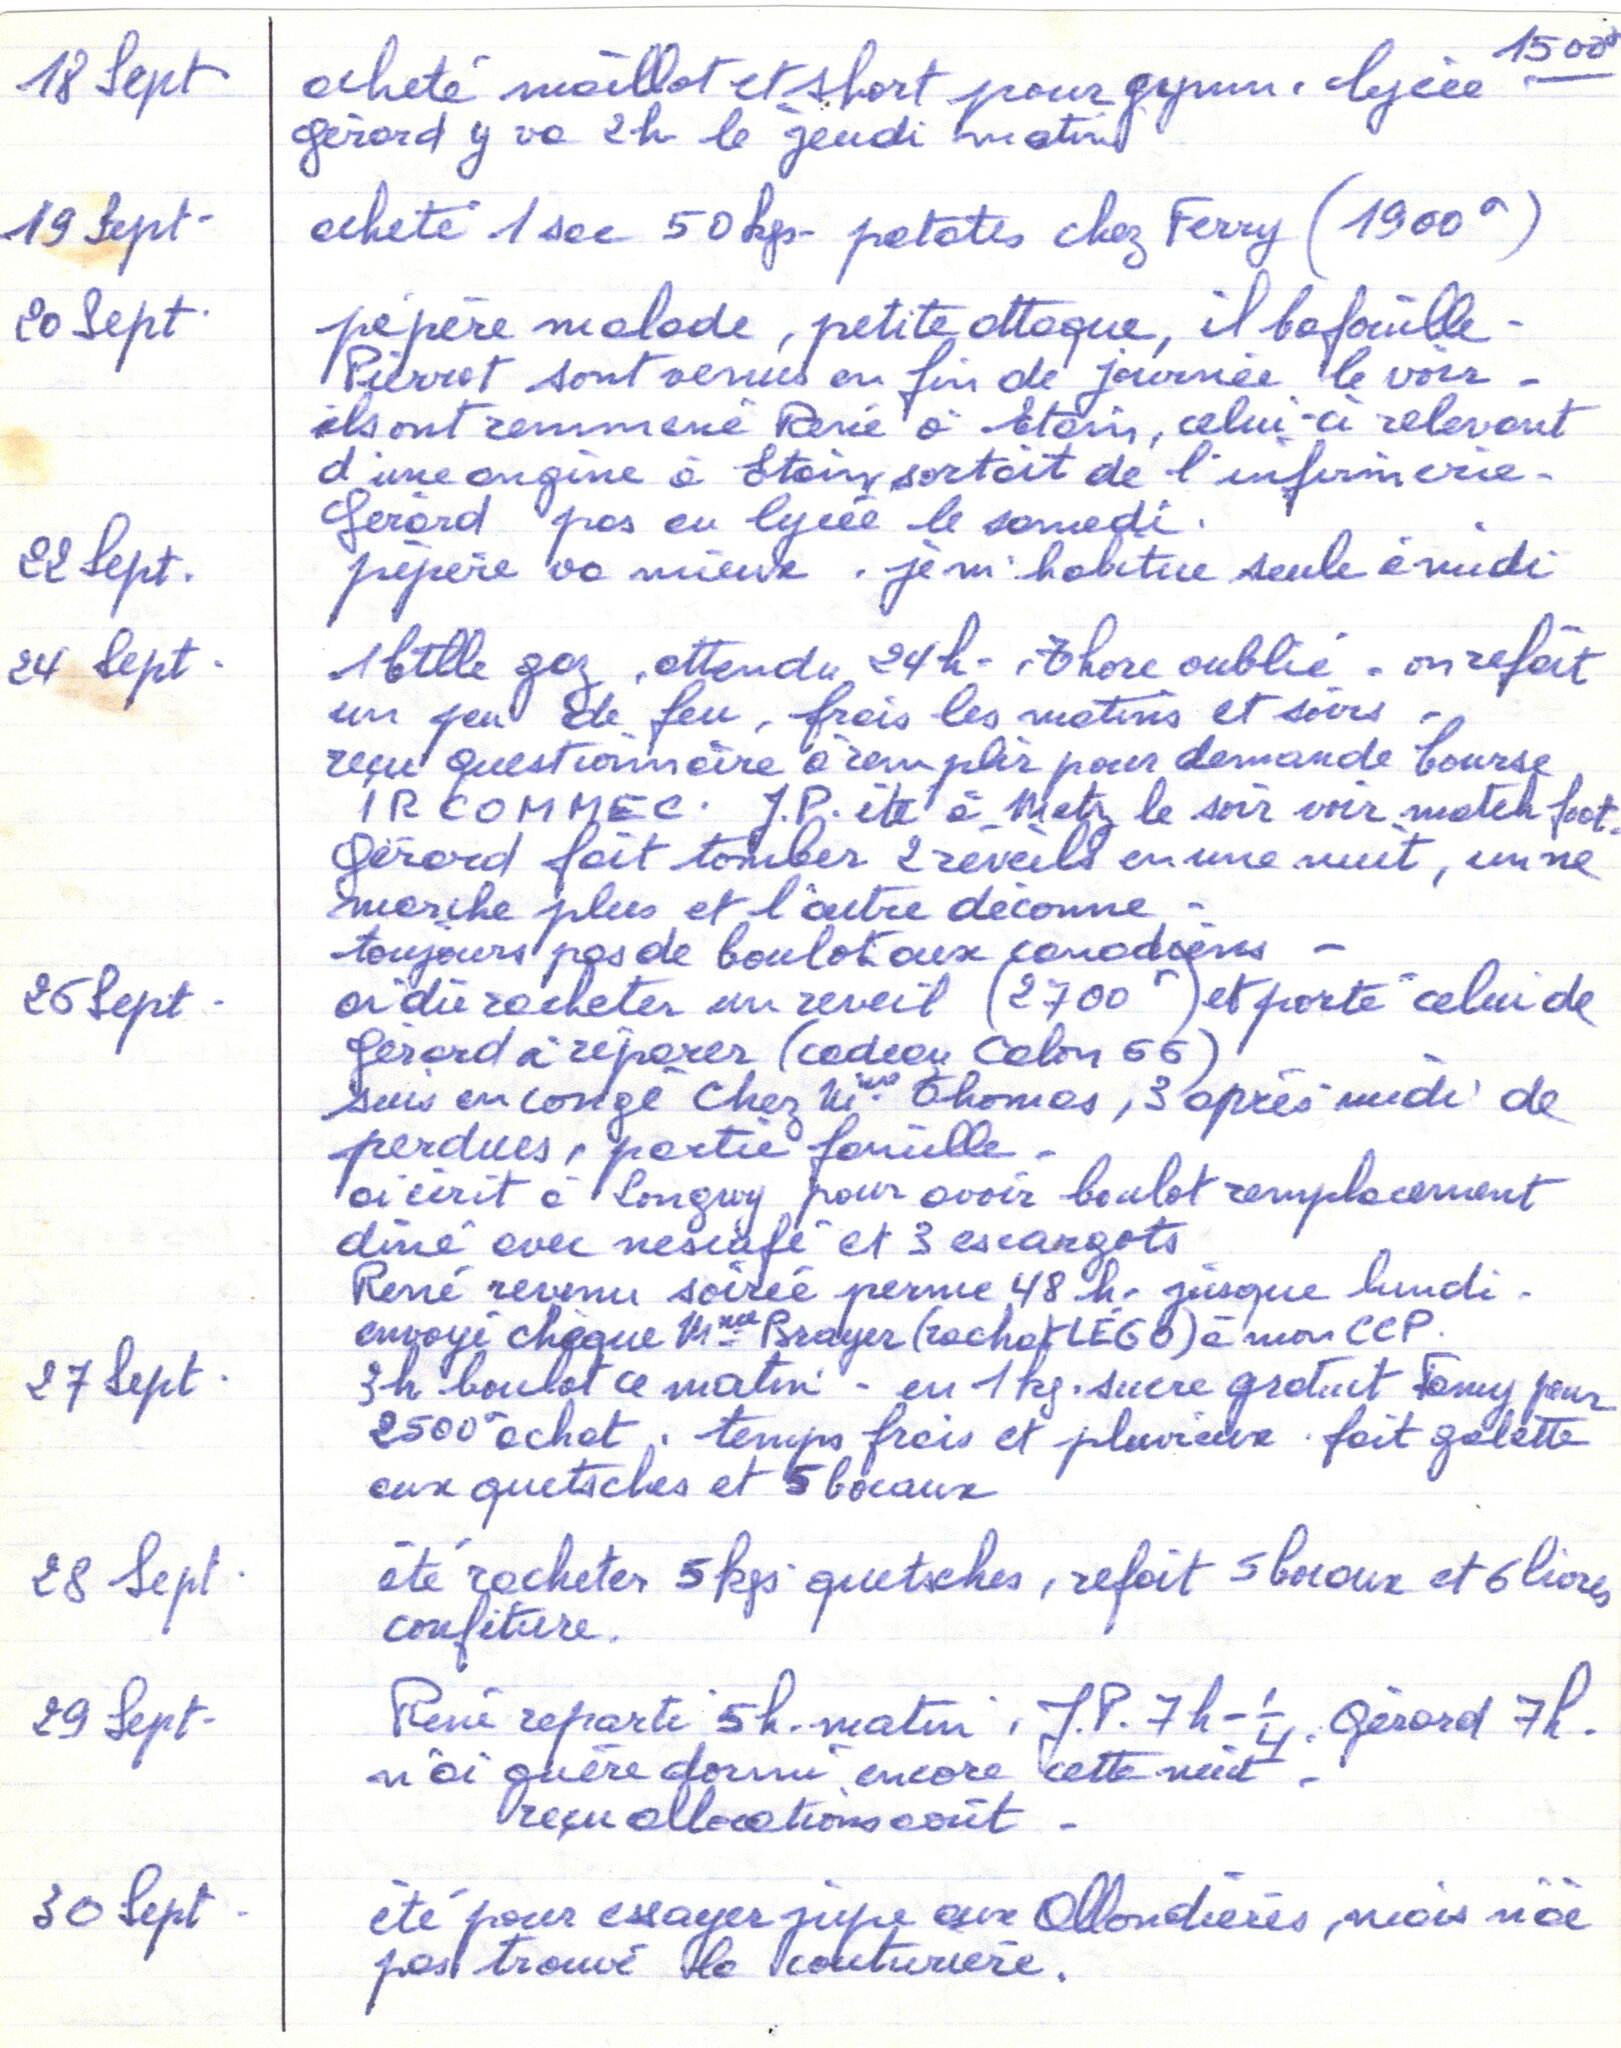 18 Sept acheté maillot et short pour gymn. lycée 1500
Gérard y va 2h le jeudi matin
19 Sept- acheté 1 sac 50 kgs- patates chez Ferry (1900a)
20 Sept. pépère malade, petite attaque, il bafouille -
Pierrot sont venus en fin de journée le voir -
ils ont remmené René à Etain, celui-ci relevant
d'une angine à Etain, sortait de l'infirmerie -
Gérard pas eu lycée le samedi.
22 Sept. pépère va mieux. je m'habitue seule à midi
24 Sept- 1 btlle gaz, attendu 24h-, Thore oublié - on refait
un peu de feu, frais les matins et soirs -
reçu questionnaire à remplir pour demande bourse
IRCOMMEC. J.P. été à Metz le soir voir match foot-
Gérard fait tomber 2 réveils en une nuit, un ne
marche plus et l'autre déconne -
toujours pas de boulot aux canadiens -
26 Sept- ai dû racheter un reveil (2700a) et porté celui de
Gérard à réparer (cadeau Colon 66)
suis en congé chez Mme Thomas, 3 après midi de
perdues, partie famille -
ai écrit à Longwy pour avoir boulot remplacement
diné avec nescafé et 3 escargots
René revenu soirée perme 48 h- jusque lundi -
envoyé chèque Mme Brayer (rachat LÉGO) à mon CCP.
27 Sept. 3h boulot ce matin - eu 1 kg. sucre gratuit Famy pour
2500a achat. temps frais et pluvieux. fait galette
aux quetsches et 5 bocaux
28 Sept. été racheter 5 kgs quetsches, refait 5 bocaux et 6 livres
confiture.
29 Sept- René reparti 5h. matin, J.P. 7h-1/4. Gérard 7h.
n'ai guère dormi encore cette nuit -
reçu allocations août -
30 Sept- été pour essayer jupe aux Ollondières, mais n'ai
pas trouvé la couturière.